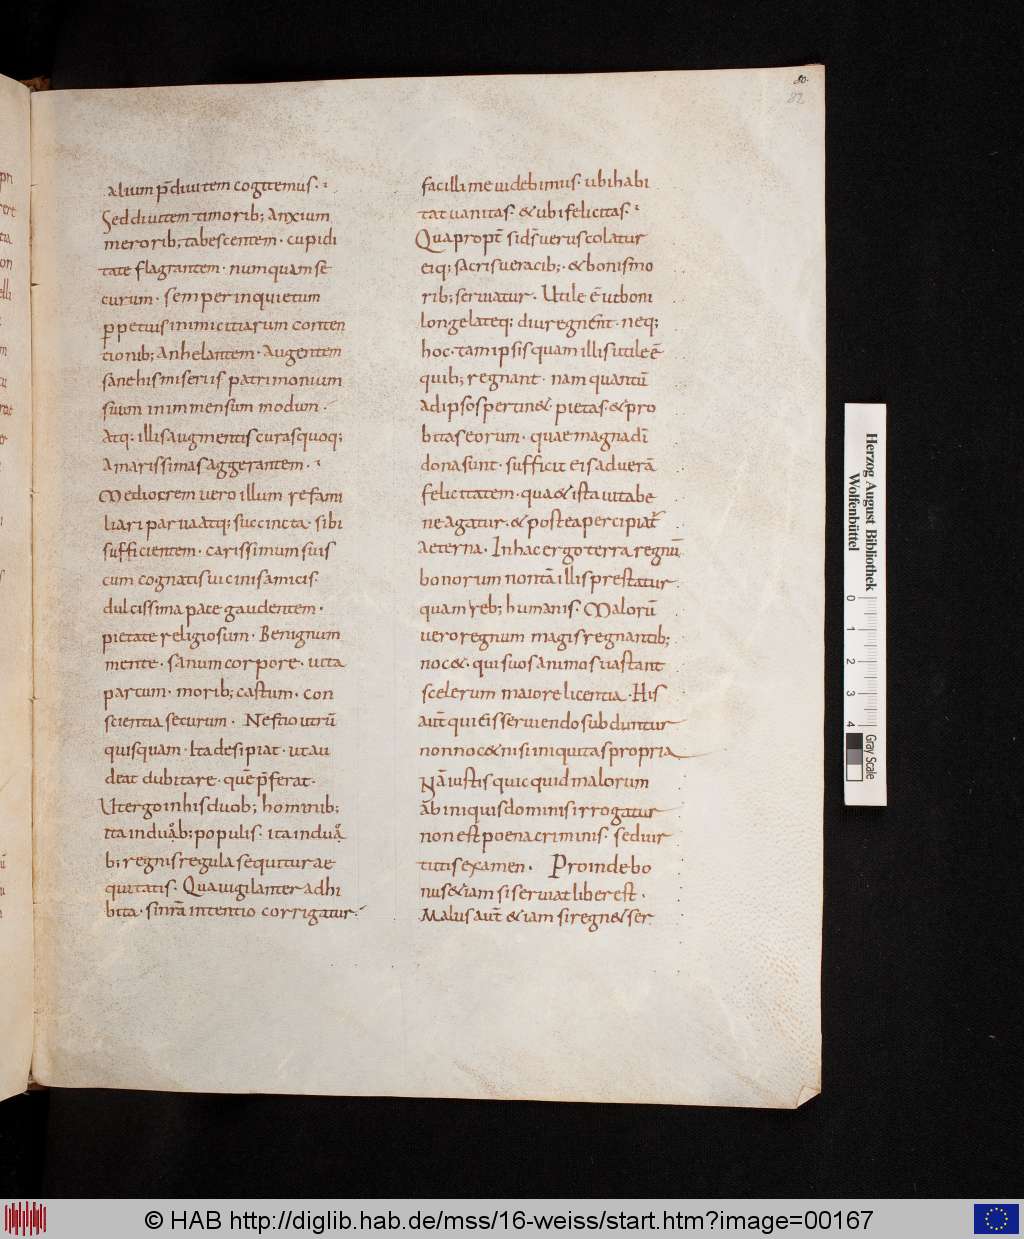 80.
82
alium p̄diuitem cogitemus.
Sed diuitem timorib; anxium
merorib; tabescentem. cupidi
tate flagrantem. numquam se
curum. semper inquietum
ꝑpetuis inimicitiarum conten
tionib; anhelantem. augentem
sane his miseriis patrimonium
suum in inmensum modum.
atq: illis augmentis curas quoq;
amarissimas aggerantem.
Mediocrem uero illum re fami
liari parua atq; succincta. sibi
sufficientem. carissimum suis
cum cognatis uicinis amicis.
dulcissima pace gaudentem.
pietate religiosum. Benignum
mente. sanum corpore. uita
parcum. morib; castum. con
scientia securum. Nescio utrū
quisquam. Ita desipiat. ut au
deat dubitare. quē p̄ferat.
Ut ergo in his duob; hominib;
ita in duab; populis. ita in dua
b; regnis regula sequitur ae
quitatis. Qua uigilanter adhi
bita. si nr̄a intentio corrigatur.
facillime uidebimus. ubi habi
tat uanitas. & ubi felicitas.
Quapropt̄ si d̄s uerus colatur
eiq; sacris ueracib;. & bonis mo
rib; seruiatur. Utile ē ut boni
longe lateq; diu regnent. neq;
hoc. tam ipsis quam illis utile ē
quib; regnant. nam quantū
ad ipsos pertin&. pietas. & pro
bitas eorum. quae magna dī
dona sunt. sufficit eis ad uerā
felicitatem. qua & ista uita be
ne agatur. & postea percipiat̄
aeterna. In hac ergo terra regnū
bonorum non tā illis prestatur.
quam reb; humanis. Malorū
uero regnum magis regnantib;
noc&. qui suos animos uastant
scelerum maiore licentia. His
aut̄ qui eis seruiendo subduntur
non noc& nisi iniquitas propria
Nā iustis quicquid malorum
ab iniquis dominis irrogatur
non est poena criminis. sed uir
tutis examen. Proinde bo
nus &iam si seruiat liber est.
Malus aut̄ &iam si regn& ser
Herzog August Bibliothek
Wolfenbüttel
0 1 2 3 4
Gray Scale
© HAB http://diglib.hab.de/mss/16-weiss/start.htm?image=00167